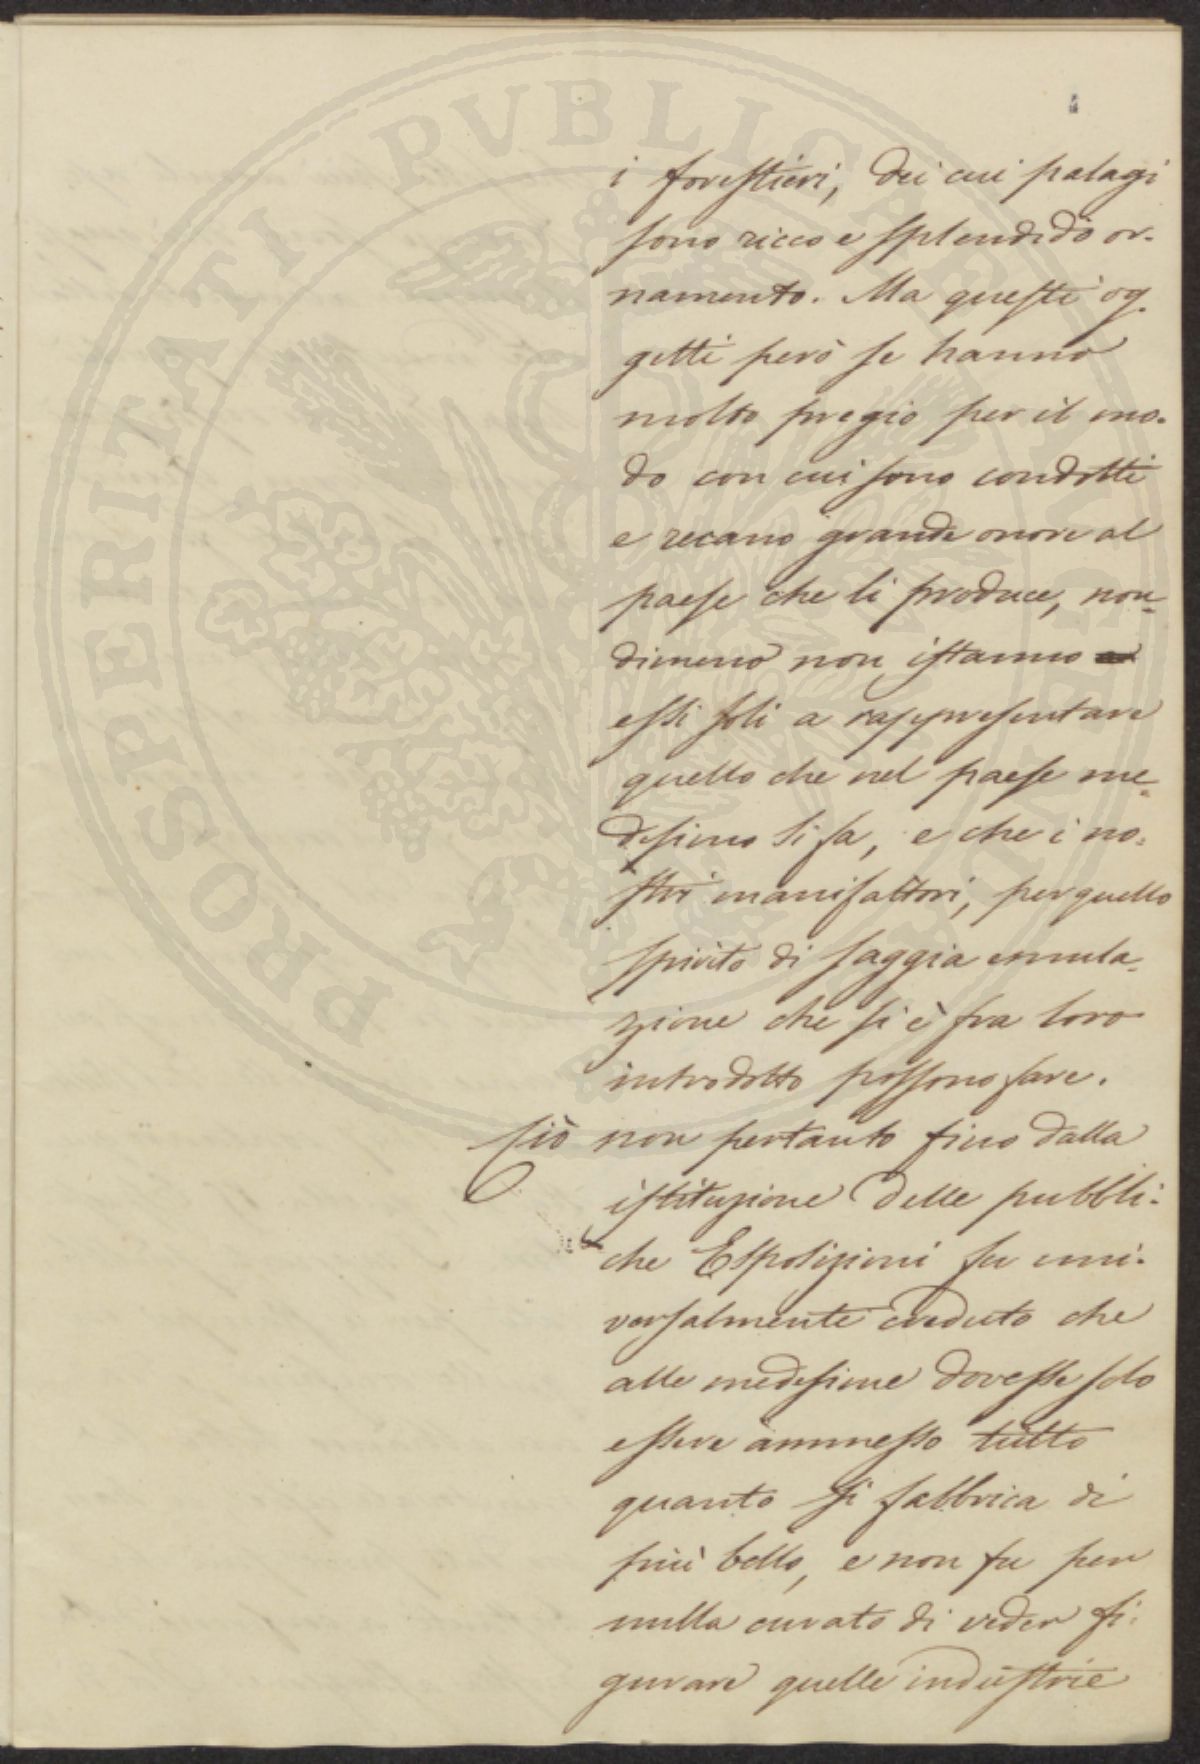 PROSPERITATI PUBLICAE AUGENDAE
i forestieri, dei cui palagi
sono ricco e splendido or-
namento. Ma questi og-
getti però se hanno
molto pregio per il mo-
do con cui sono condotti
e recano grande onore al
paese che li produce, non-
dimeno non istanno
essi soli a rappresentare
quello che nel paese me-
desimo si fa, e che i no-
stri manifattori, per quello
spirito di saggia emula-
zione che si è fra loro
introdotto possono fare.
Ciò non pertanto fino dalla
istituzione delle pubbli-
che Esposizioni fu uni-
versalmente creduto che
alle medesime dovesse solo
essere ammesso tutto
quanto si fabbrica di
più bello, e non fu per
nulla curato di veder fi-
gurare quelle industrie